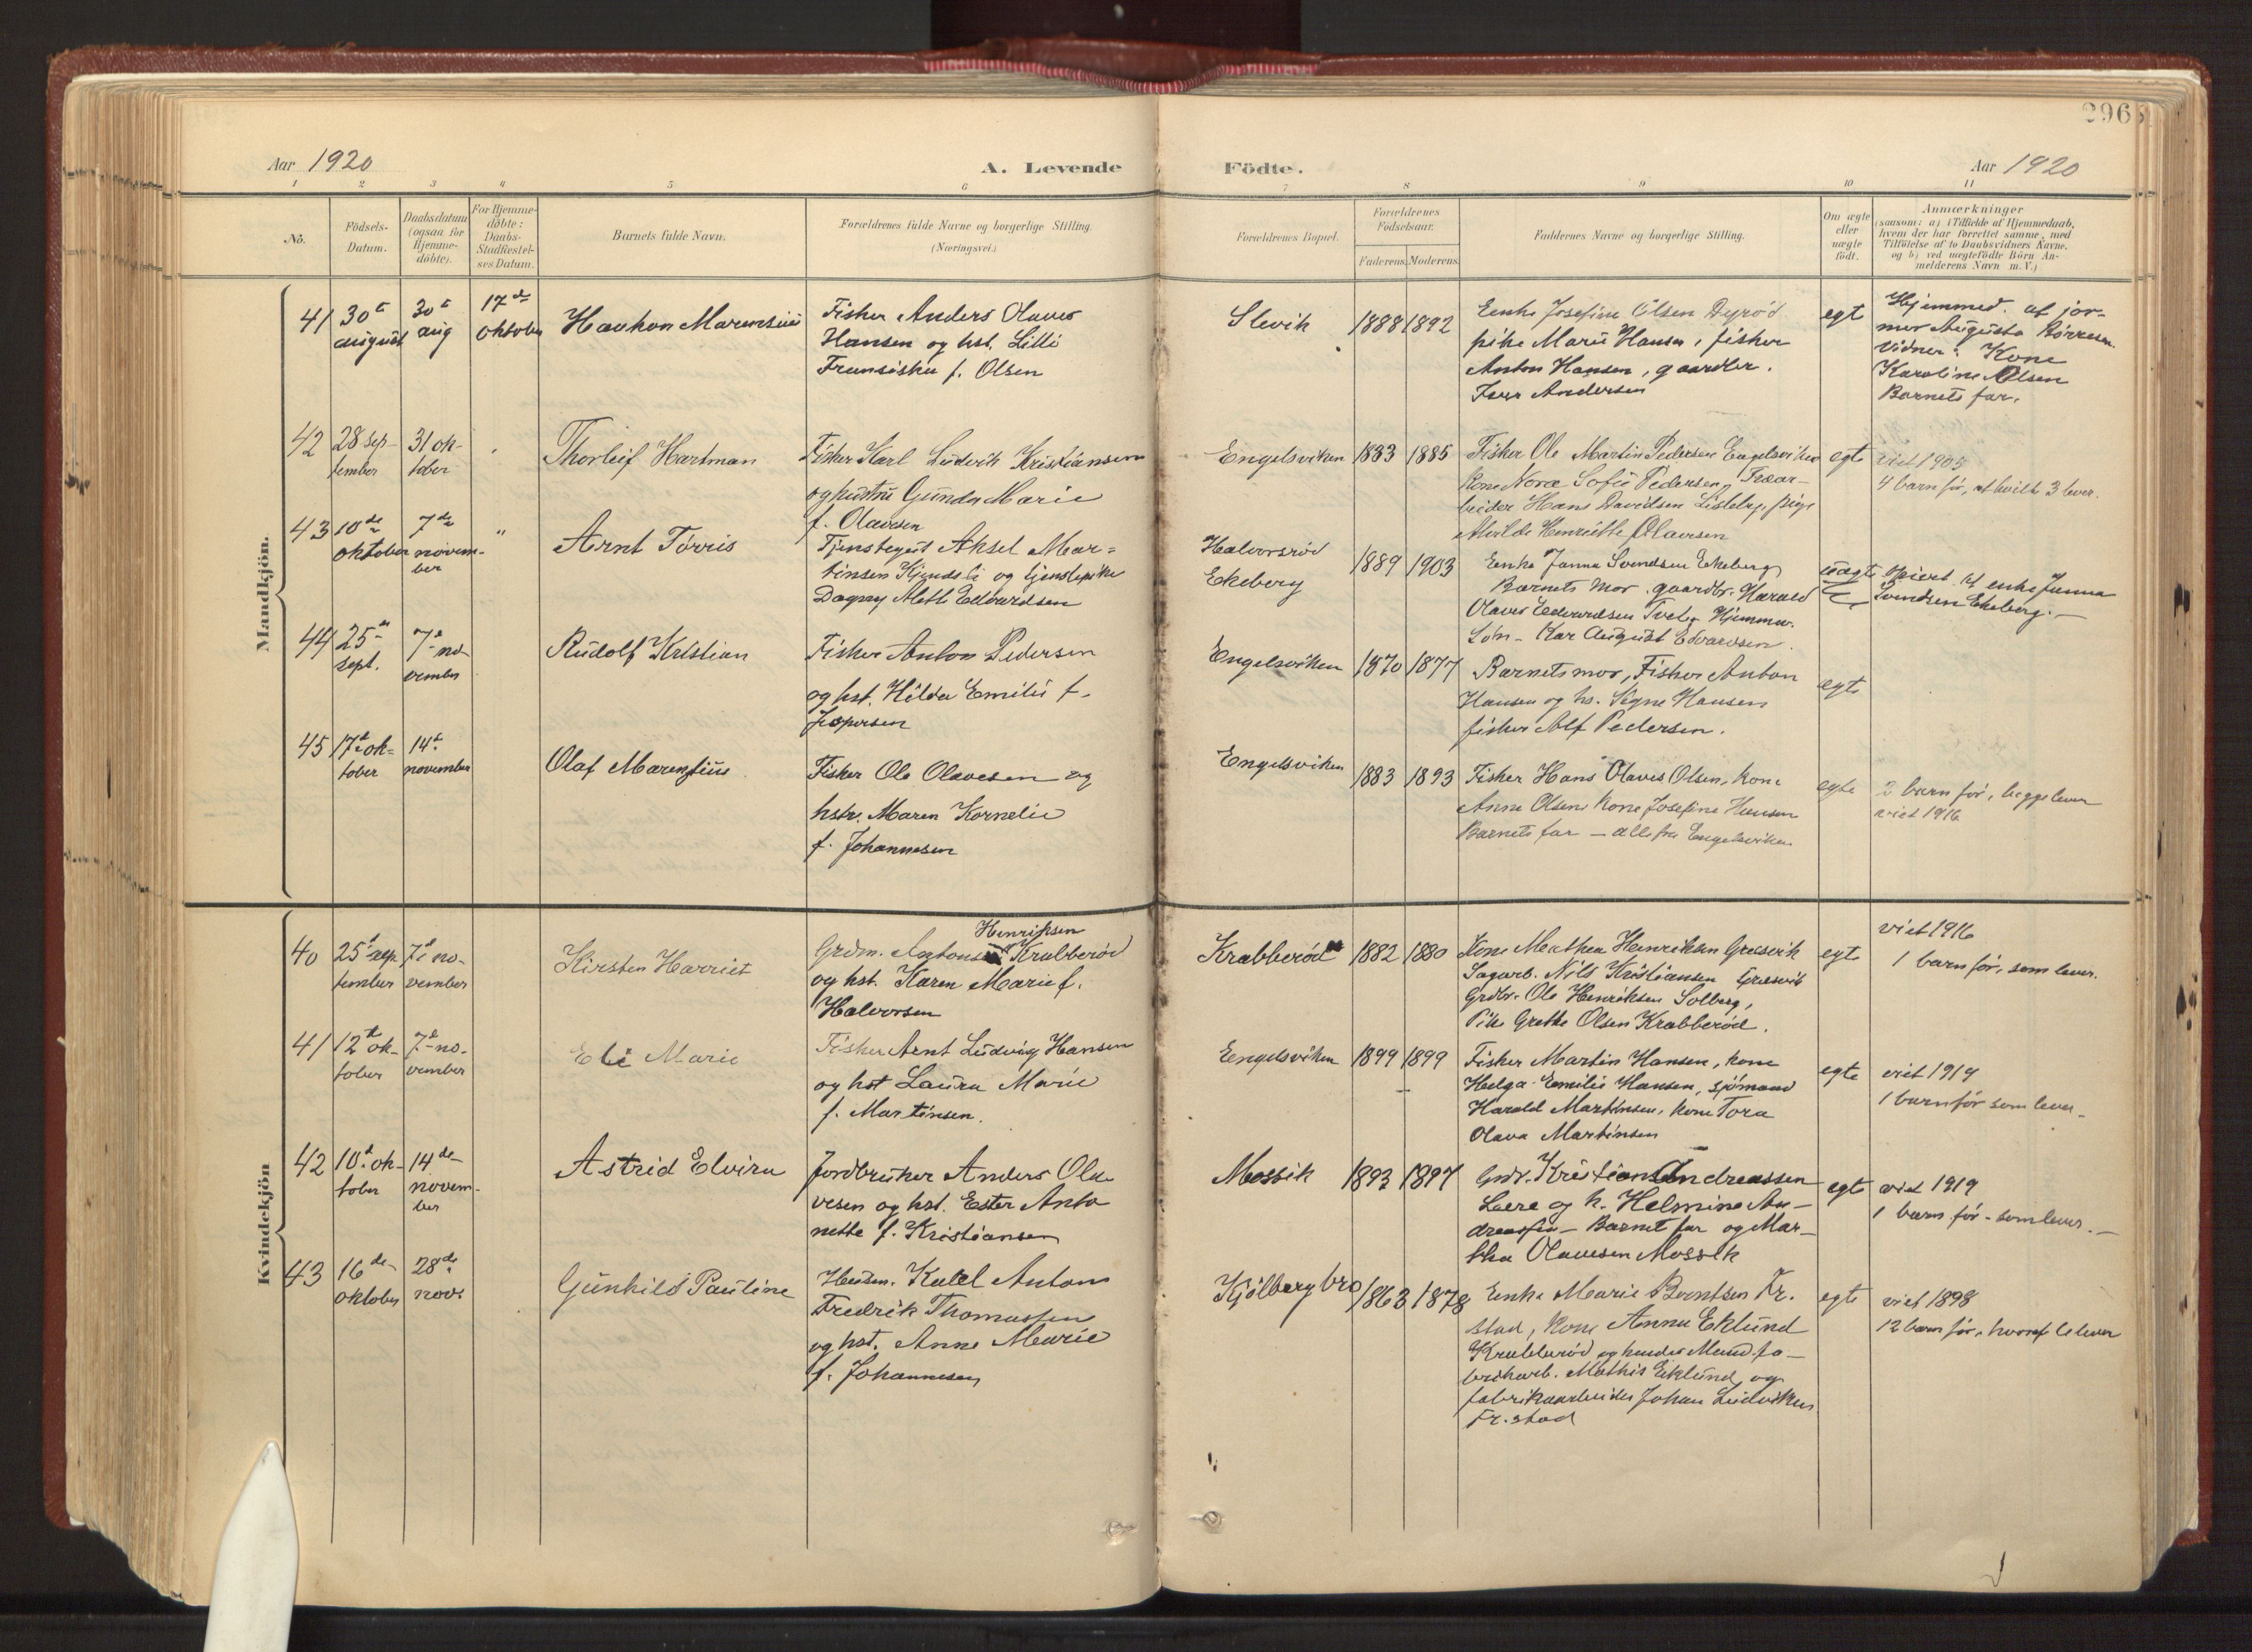 296
Aar 1920
A. Levende Födte.
Aar 1920
1 2 3 4 5 6 7 8 9 10 11
No.
Födsels-
Datum.
Daabsdatum
(ogsaa for
Hjemme-
döbte).
For Hjemme-
döbte:
Daabs-
Stadfæstel-
ses Datum.
Barnets fulde Navn.
Forældrenes fulde Navne og borgerlige Stilling.
(Næringsvei.)
Forældrenes Bopæl.
Forældrenes
Födselsaar.
Faderens. Moderens.
Faddernes Navne og borgerlige Stilling.
Om ægte
eller
uægte
födt.
Anmærkninger
(saasom: a) i Tilfælde af Hjemmedaab,
hvem der har forrettet samme, med
Tilföielse af to Daabsvidners Navne.
og b) ved uægtefödte Börn An-
melderens Navn m. V.)
Mandkjön.
41
30t
august
30t
aug
17de
oktober
Haakon Marensius
Fisher Anders Olaves
Hansen og hst. Lilli
Fransiska f. Olsen
Slevik
1888 1892
Enke Josefine Olsen Dyrød
pike Marie Hansen, fisker
Anton Hansen, gaardbr.
Iver Andersen
egt
Hjemmed. af jor-
mor Augusta Børresen.
Vidner: Kone
Karoline Olsen
Barnets far.
42
28 sep-
tember
31 ok-
tober
Thorleif Hartman
Fisker Karl Ludvik Kristiansen
og hustru Gunda Marie
f. Olavesen
Engelsviken
1883 1885
Fisker Ole Martin Pedersen Engelsviken
kone Nora Sofie Pedersen, Træar-
beider Hans Davidsen Lisleby, pige
Alvilde Henriette Olavesen
egte
viet 1905
4 barn før, af hvilke 3 lever.
43
10de
oktober
7de
novem-
ber
"
Arnt Tørris
Tjenstegut Aksel Mar=
tinsen Kjendsli og tjenstepike
Dagny Aleth Edvardsen
Halvorsrød
Ekeberg
1889 1903
Enke Janna Svendsen Ekeberg
Barnets mor. gaardbr. Harald
Olaves Edvardsen Tvete, Hjemmev.
Søn - Kar August Edvardsen.
uægte
Opiert af enke Janna
Svendsen Ekeberg. -
44
25de
sept.
7de no-
vember
Rudolf Kristian
Fisker Anton Pedersen
og hst. Hilda Emilie f.
Jespersen
Engelsviken
1870 1877
Barnets mor, Fisker Anton
Hansen og hs. Signe Hansen
fisker Alf Pedersen.
egte
45
17de ok=
tober
14de
november
Olaf Marensius
Fisker Ole Olavesen og
hstr. Maren Kornelie
f. Johannesen
Engelsviken
1883 1893
Fisker Hans Olaves Olsen, kone
Anne Olsen, kone Josefine Hansen
Barnets far - alle fra Engelsviken
egte
2 barn før, begge lever
viet 1916
Kvindekjön
40
25de sep
tember
7de no-
vember
Kirsten Harriet
Henriksen
Grdm. Antons Krabberød
og hst. Karen Marie f.
Halvorsen
Krabberød
1882 1880
Kone Mathea Henriksen Gresvik
Sagarb. Nils Kristiansen Gresvik
Grdbr. Ole Henriksen Solberg,
Pike Grethe Olsen Krabberød.
egte
viet 1916
1 barn før, som lever.
41
12te ok-
tober
7de no-
vember
Eli Marie
Fisker Arnt Ludvig Hansen
og hst Laura Marie
f. Martinsen.
Engelsviken
1899 1899
Fisker Martin Hansen, kone
Helga Emilie Hansen, sjömand
Harald Martinsen, kone Tora
Olava Martinsen
egte
viet 1919
1 barn før som lever.
42
10de ok-
tober
14de
novem-
ber
Astrid Elvira
Jordbruker Anders Ola-
vesen og hst. Ester Anto
nette f. Kristiansen
Mossik
1893 1897
Grdr. Kristian Andreassen
Lere og h. Helmine An-
dreassen - Barnet far og Mar-
tha Olavesen Mossik
egte
viet 1919
1 barn før - som lever. -
43
16de
oktober
28de
novr.
Gunhild Pauline
Husm. Kalel Anton
Fredrik Thomassen
og hst. Anne Marie
f. Johannesen
Kjølberg bro
1863 1878
Enke Marie Berntsen Fr.
stad, kone Anna Eklund
Krabberød og hendes Mand fa-
brikarb. Mathis Eklund og
fabrikaarbeider Johan Ludviksen
Fr.stad
egte
viet 1898
12 barn før, hvoraf 6 lever